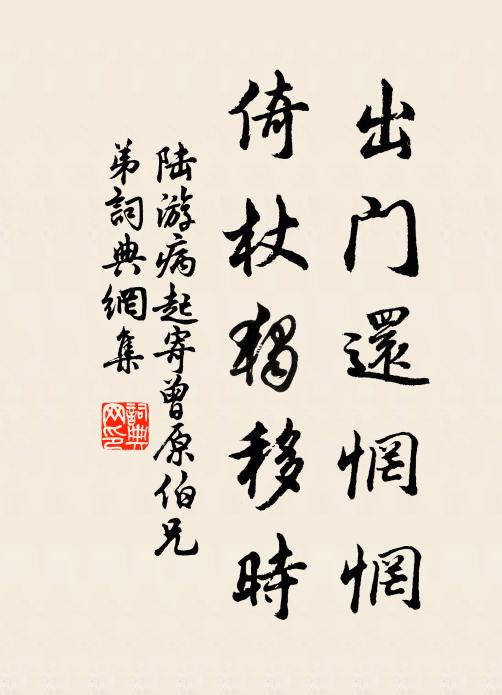 出门還惘惘
倚杖獨移時
陆游病起寄曾原伯兄
弟詞典網集
詞典网印